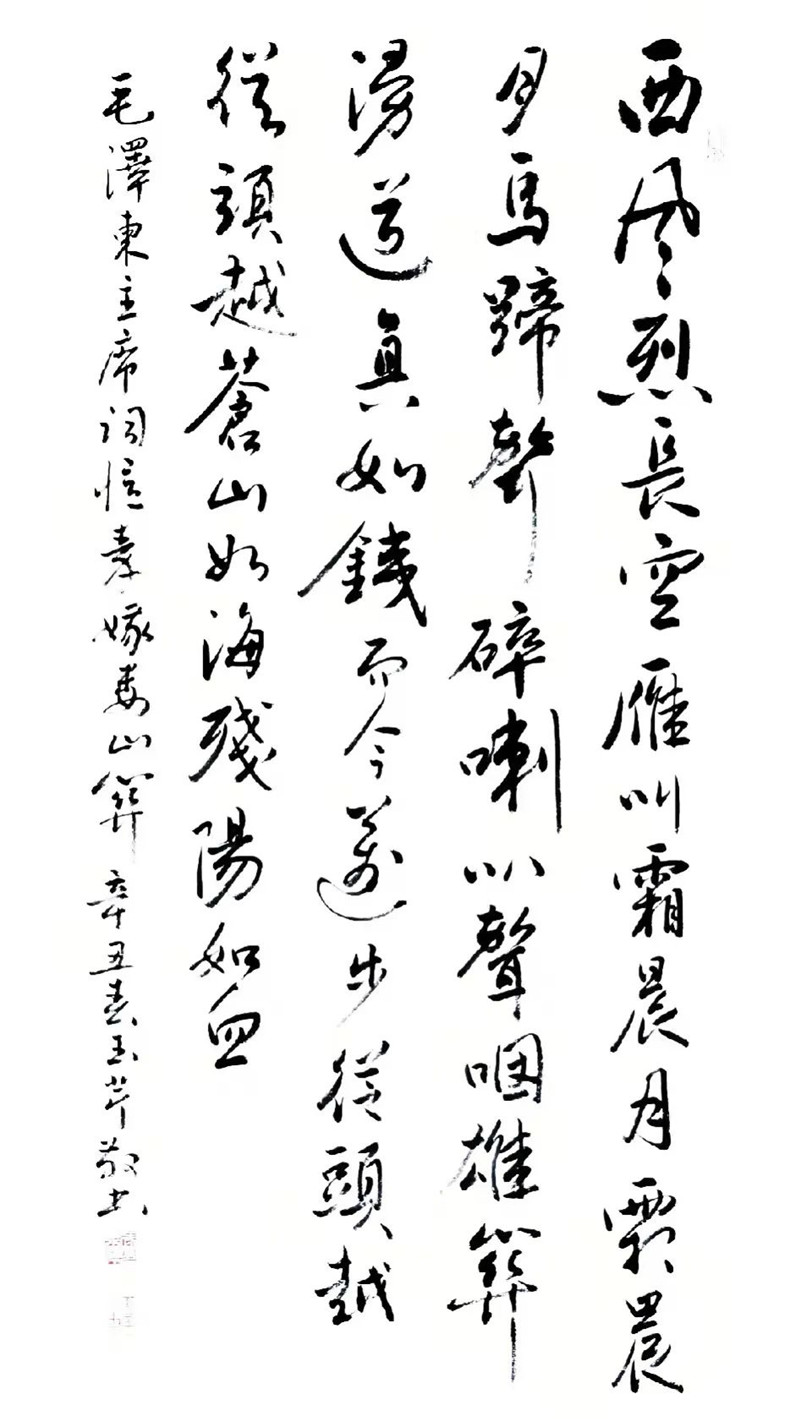 西風烈長空雁叫霜晨月霜晨
月馬蹄聲碎喇叭聲咽雄關
漫道真如鐵而今邁步從頭越
從頭越蒼山如海殘陽如血
毛澤東主席詞憶秦娥婁山關 辛丑春玉芹敬書